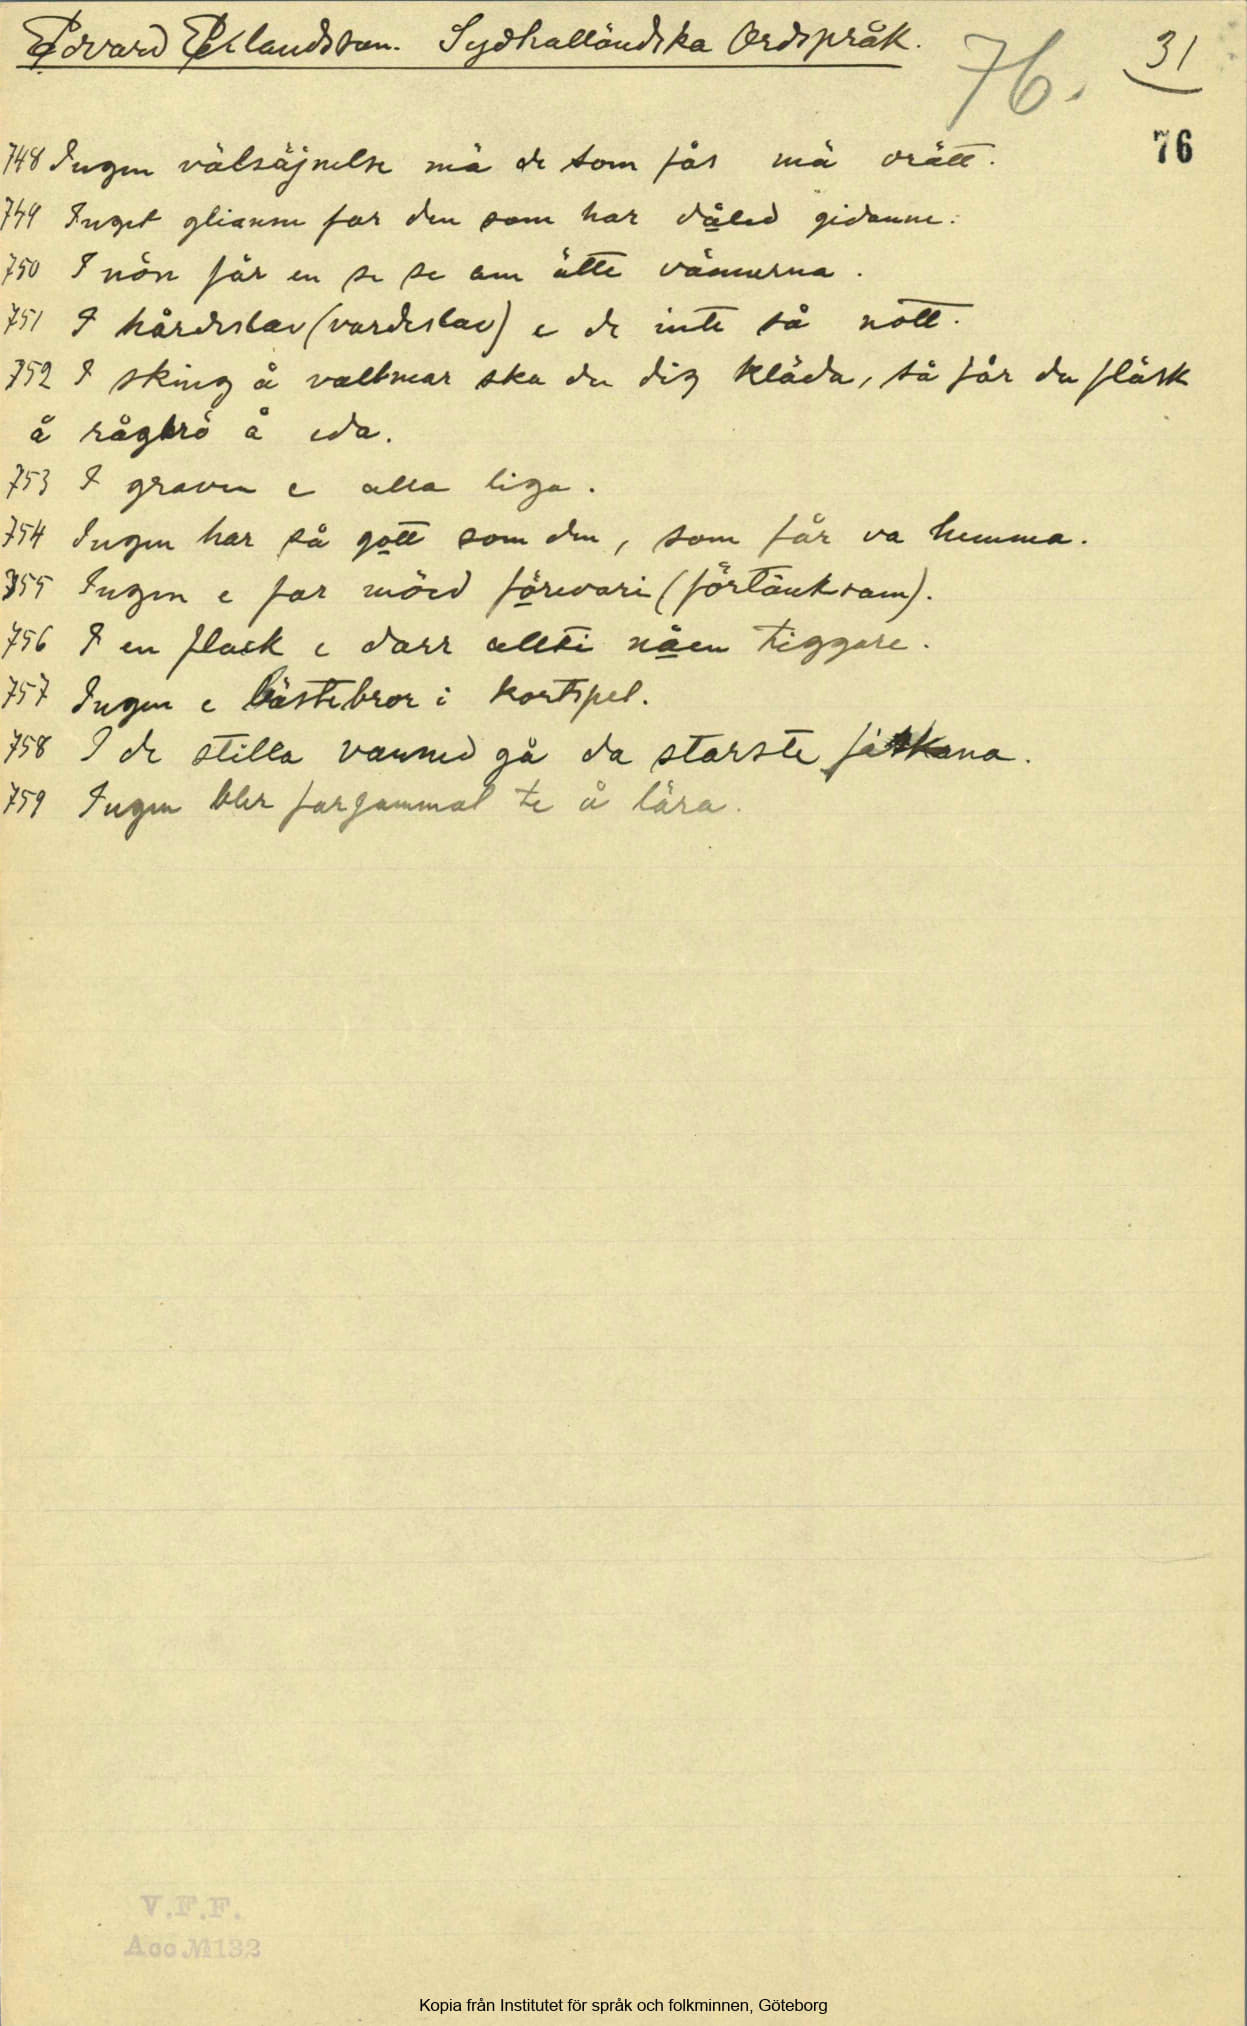 Edvard Erlandsson. Sydhalländska Ordspråk.
76.
31
76
748 Ingen välsäjnelse mä de som fås mä orätt.
749 Inget glianne far den som har dåled gidanne.
750 I nön får en se se am åtte vännerna.
751 I hårdeslav (vardeslav) e de inte så nött.
752 I sking å valbmar ska du dig kläda, så får du fläsk
å rågbrö å eda.
753 I graven e alla liga.
754 Ingen har så gott som den, som får va hemma.
755 Ingen e far möed förevari (förtänksam).
756 I en flack e darr allti nåen tiggare.
757 Ingen e bästebror i kortspel.
758 I de stilla vanned gå da starste fiskana.
759 Ingen bler fargammal te å lära.
V.F.F.
Acc. M132
Kopia från Institutet för språk och folkminnen, Göteborg